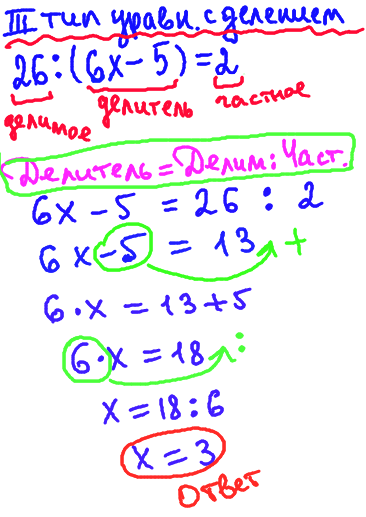 III тип уравн. с делением
26:(6x-5)=2
делимое делитель частное
Делитель=Делим:Част.
6x-5=26:2
6x-5=13 +
6·x=13+5
6·x=18 :
x=18:6
x=3
Ответ